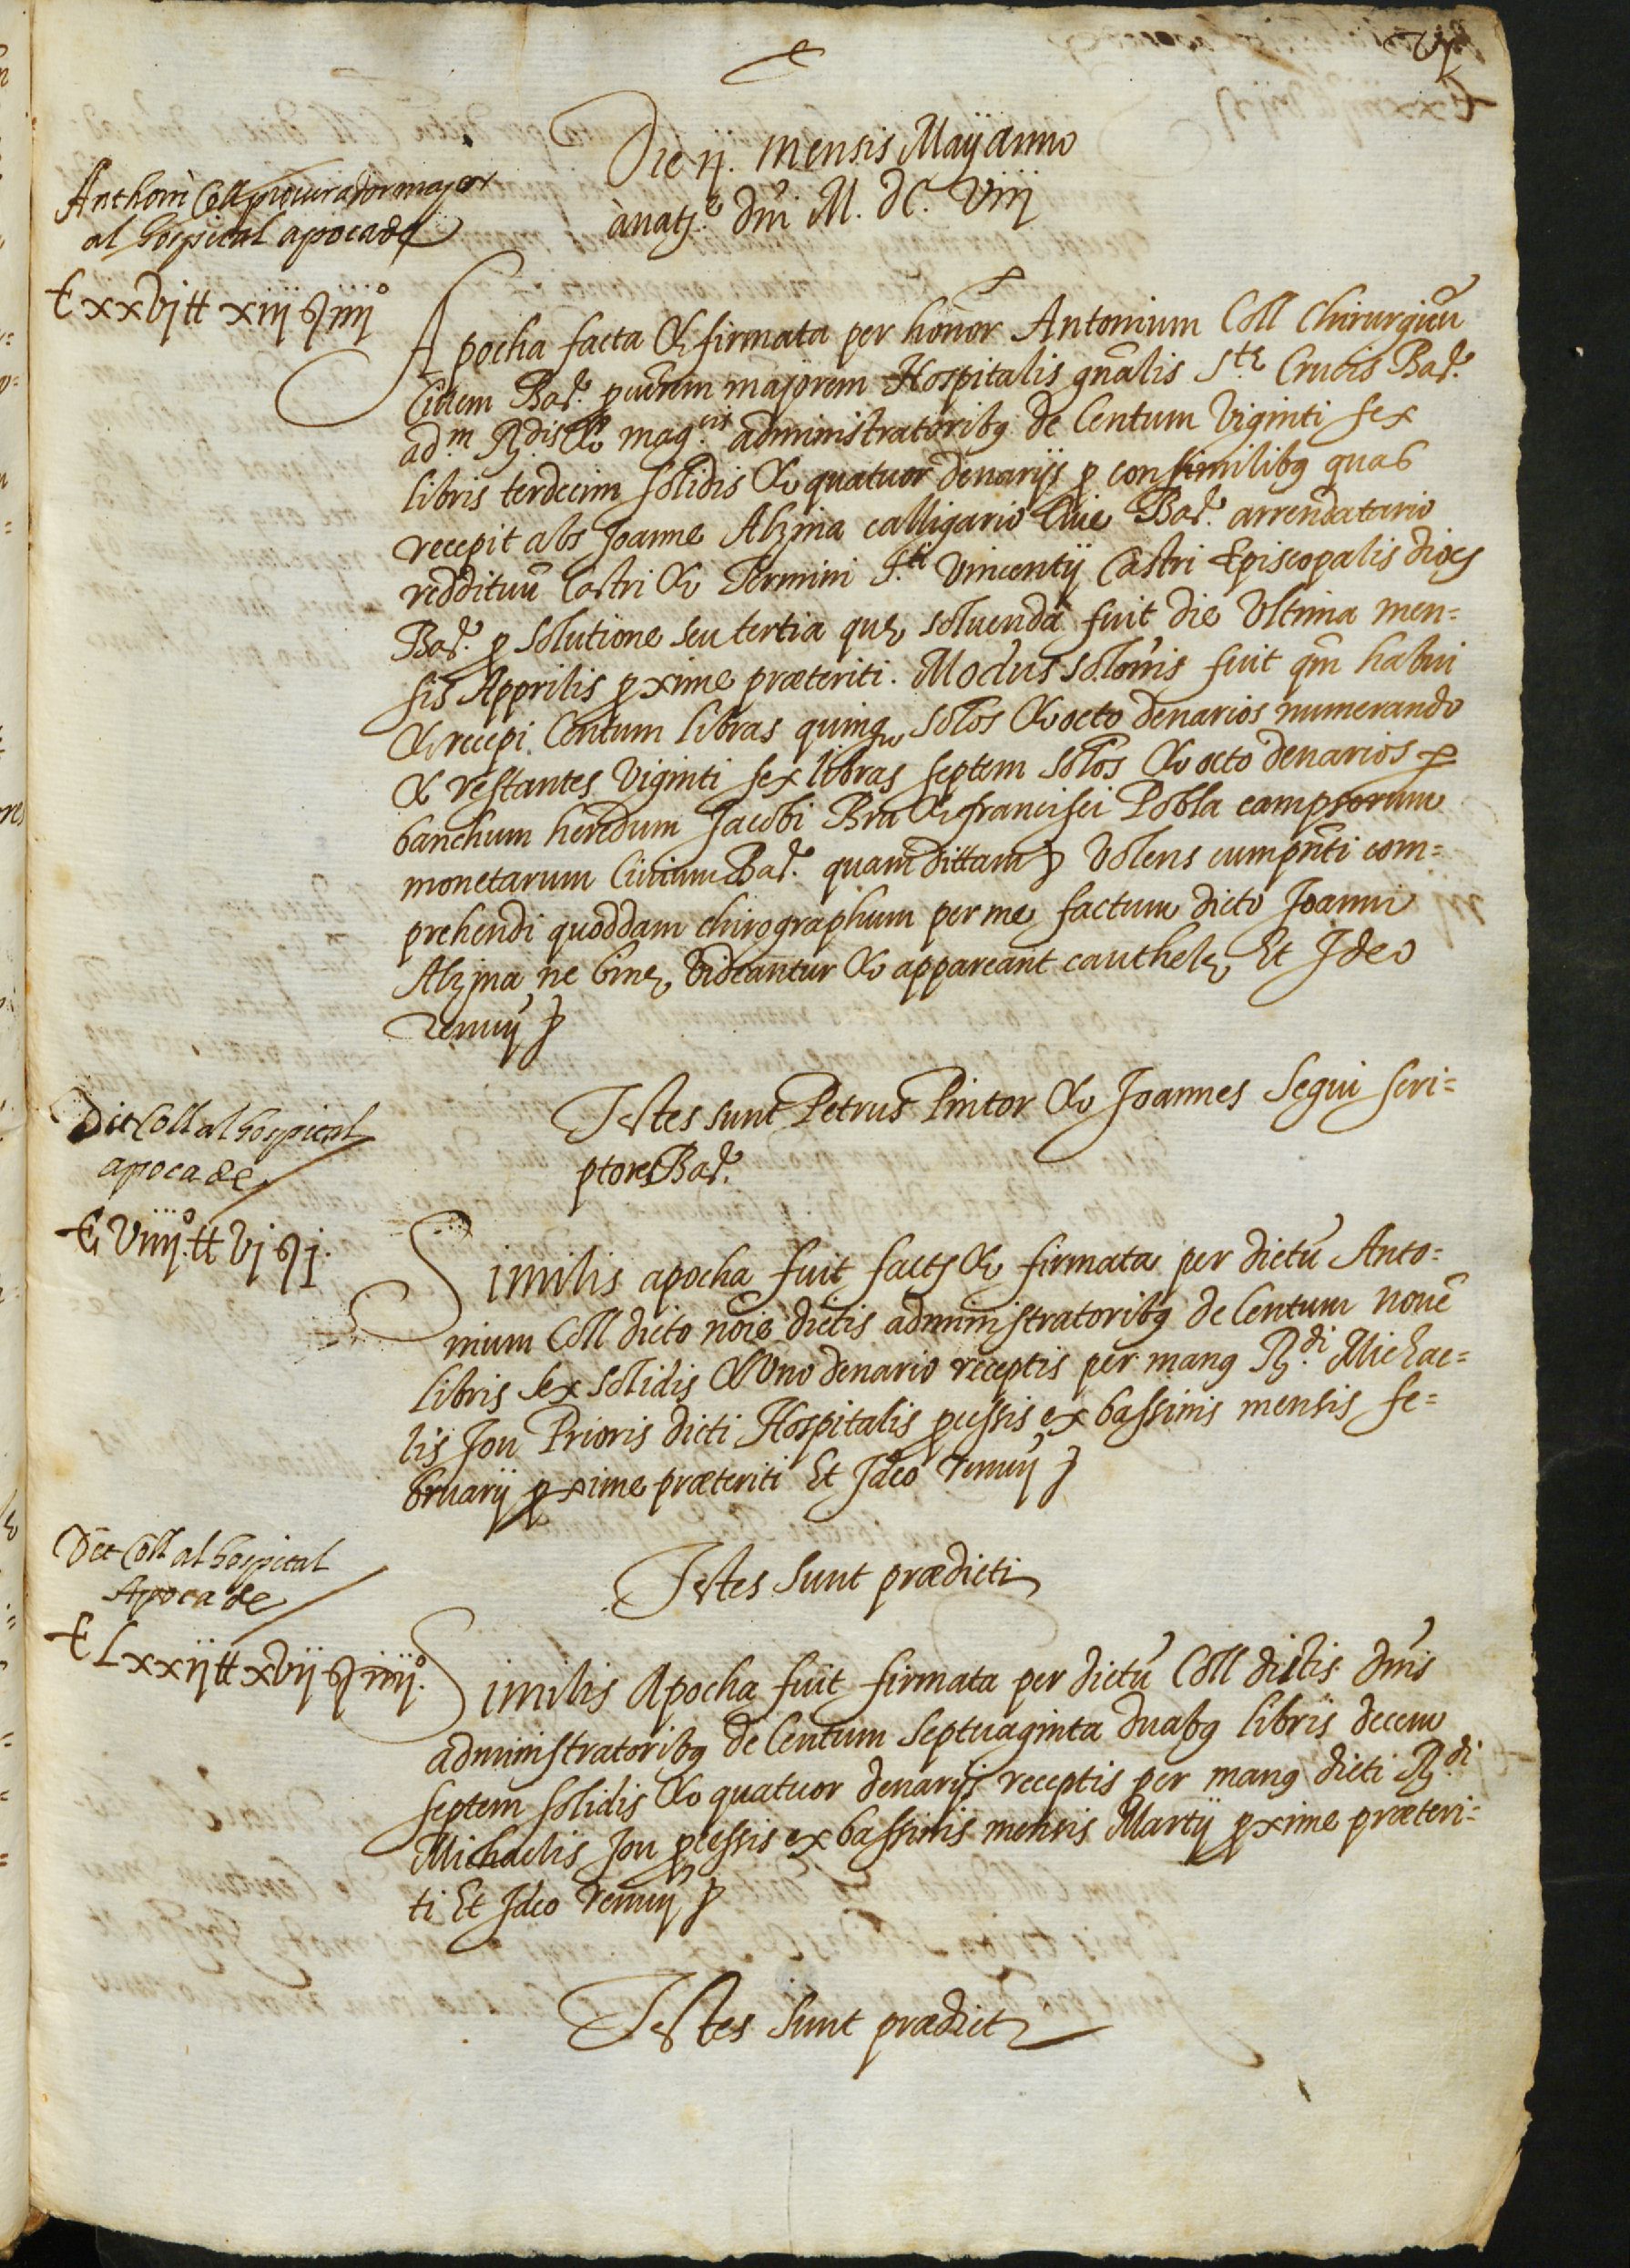 Die ij. mensis Maij anno
à nat.e dni M. dC. viiij
Anthoni Coll procurador major
al hospital apoca de
Cxxvj ll xiij s iiijo
Apocha facta & firmata per honor Antonium Coll Chirurgicū
Civem Bar.e pcuērem majorem Hospitalis gnālis S.te Crucis Bar.e
ad.m R.dis & mag.cis administratoribus de Centum viginti sex
libris terdecim solidis & quatuor denarijs p consimilibus quas
recepit abs Joanne Alzina calligario Cive Bar.e arrendatario
reddituū Castri & Termini S.ti Vincentij Castri Episcopalis dioces
Bar.e p solutione seu tertia que solvenda fuit die ultima men=
sis Apprilis pxime præteriti. Modus solonis fuit qm habui
& recepi Centum libras quinque solos & octo denarios numerando
& restantes viginti sex libras septem solos & octo denarios p
banchum herēdum Jacobi Bru & francisci Pobla campsorum
monetarum Civium Bar.e quam dittam volens cum pnti com=
prehendi quoddam chirographum per me factum dicto Joanni
Alzina ne bine videantur & appareant cauthele Et Ideo
renuñ
Testes sunt Petrus Pintor & Joannes Segui scri=
ptores Bar.e
Dit Coll al hospital
apoca de
C viiijo ll vj s j.
Similis apocha fuit facta & firmata per dictū Anto=
nium Coll dicto noie dictis administratoribus de Centum novē
libris sex solidis & uno denario receptis per manus R.di Michae=
lis Jou Prioris dicti Hospitalis pcessis ex bassinis mensis fe=
bruarij pxime præteriti Et Ideo renuñ
Testes sunt prædicti
Dit Coll al hospital
Apoca de
C Lxxij ll xvij s iiijo.
Similis Apocha fuit firmata per dictū Coll dictis dnis
administratoribus de Centum septuaginta duabus libris decem
septem solidis & quatuor denarijs receptis per manus dicti R.di
Michaelis Jou pcessis ex bassinis mensis Martij pxime præteri=
ti Et Ideo renuñ
Testes sunt prædicti